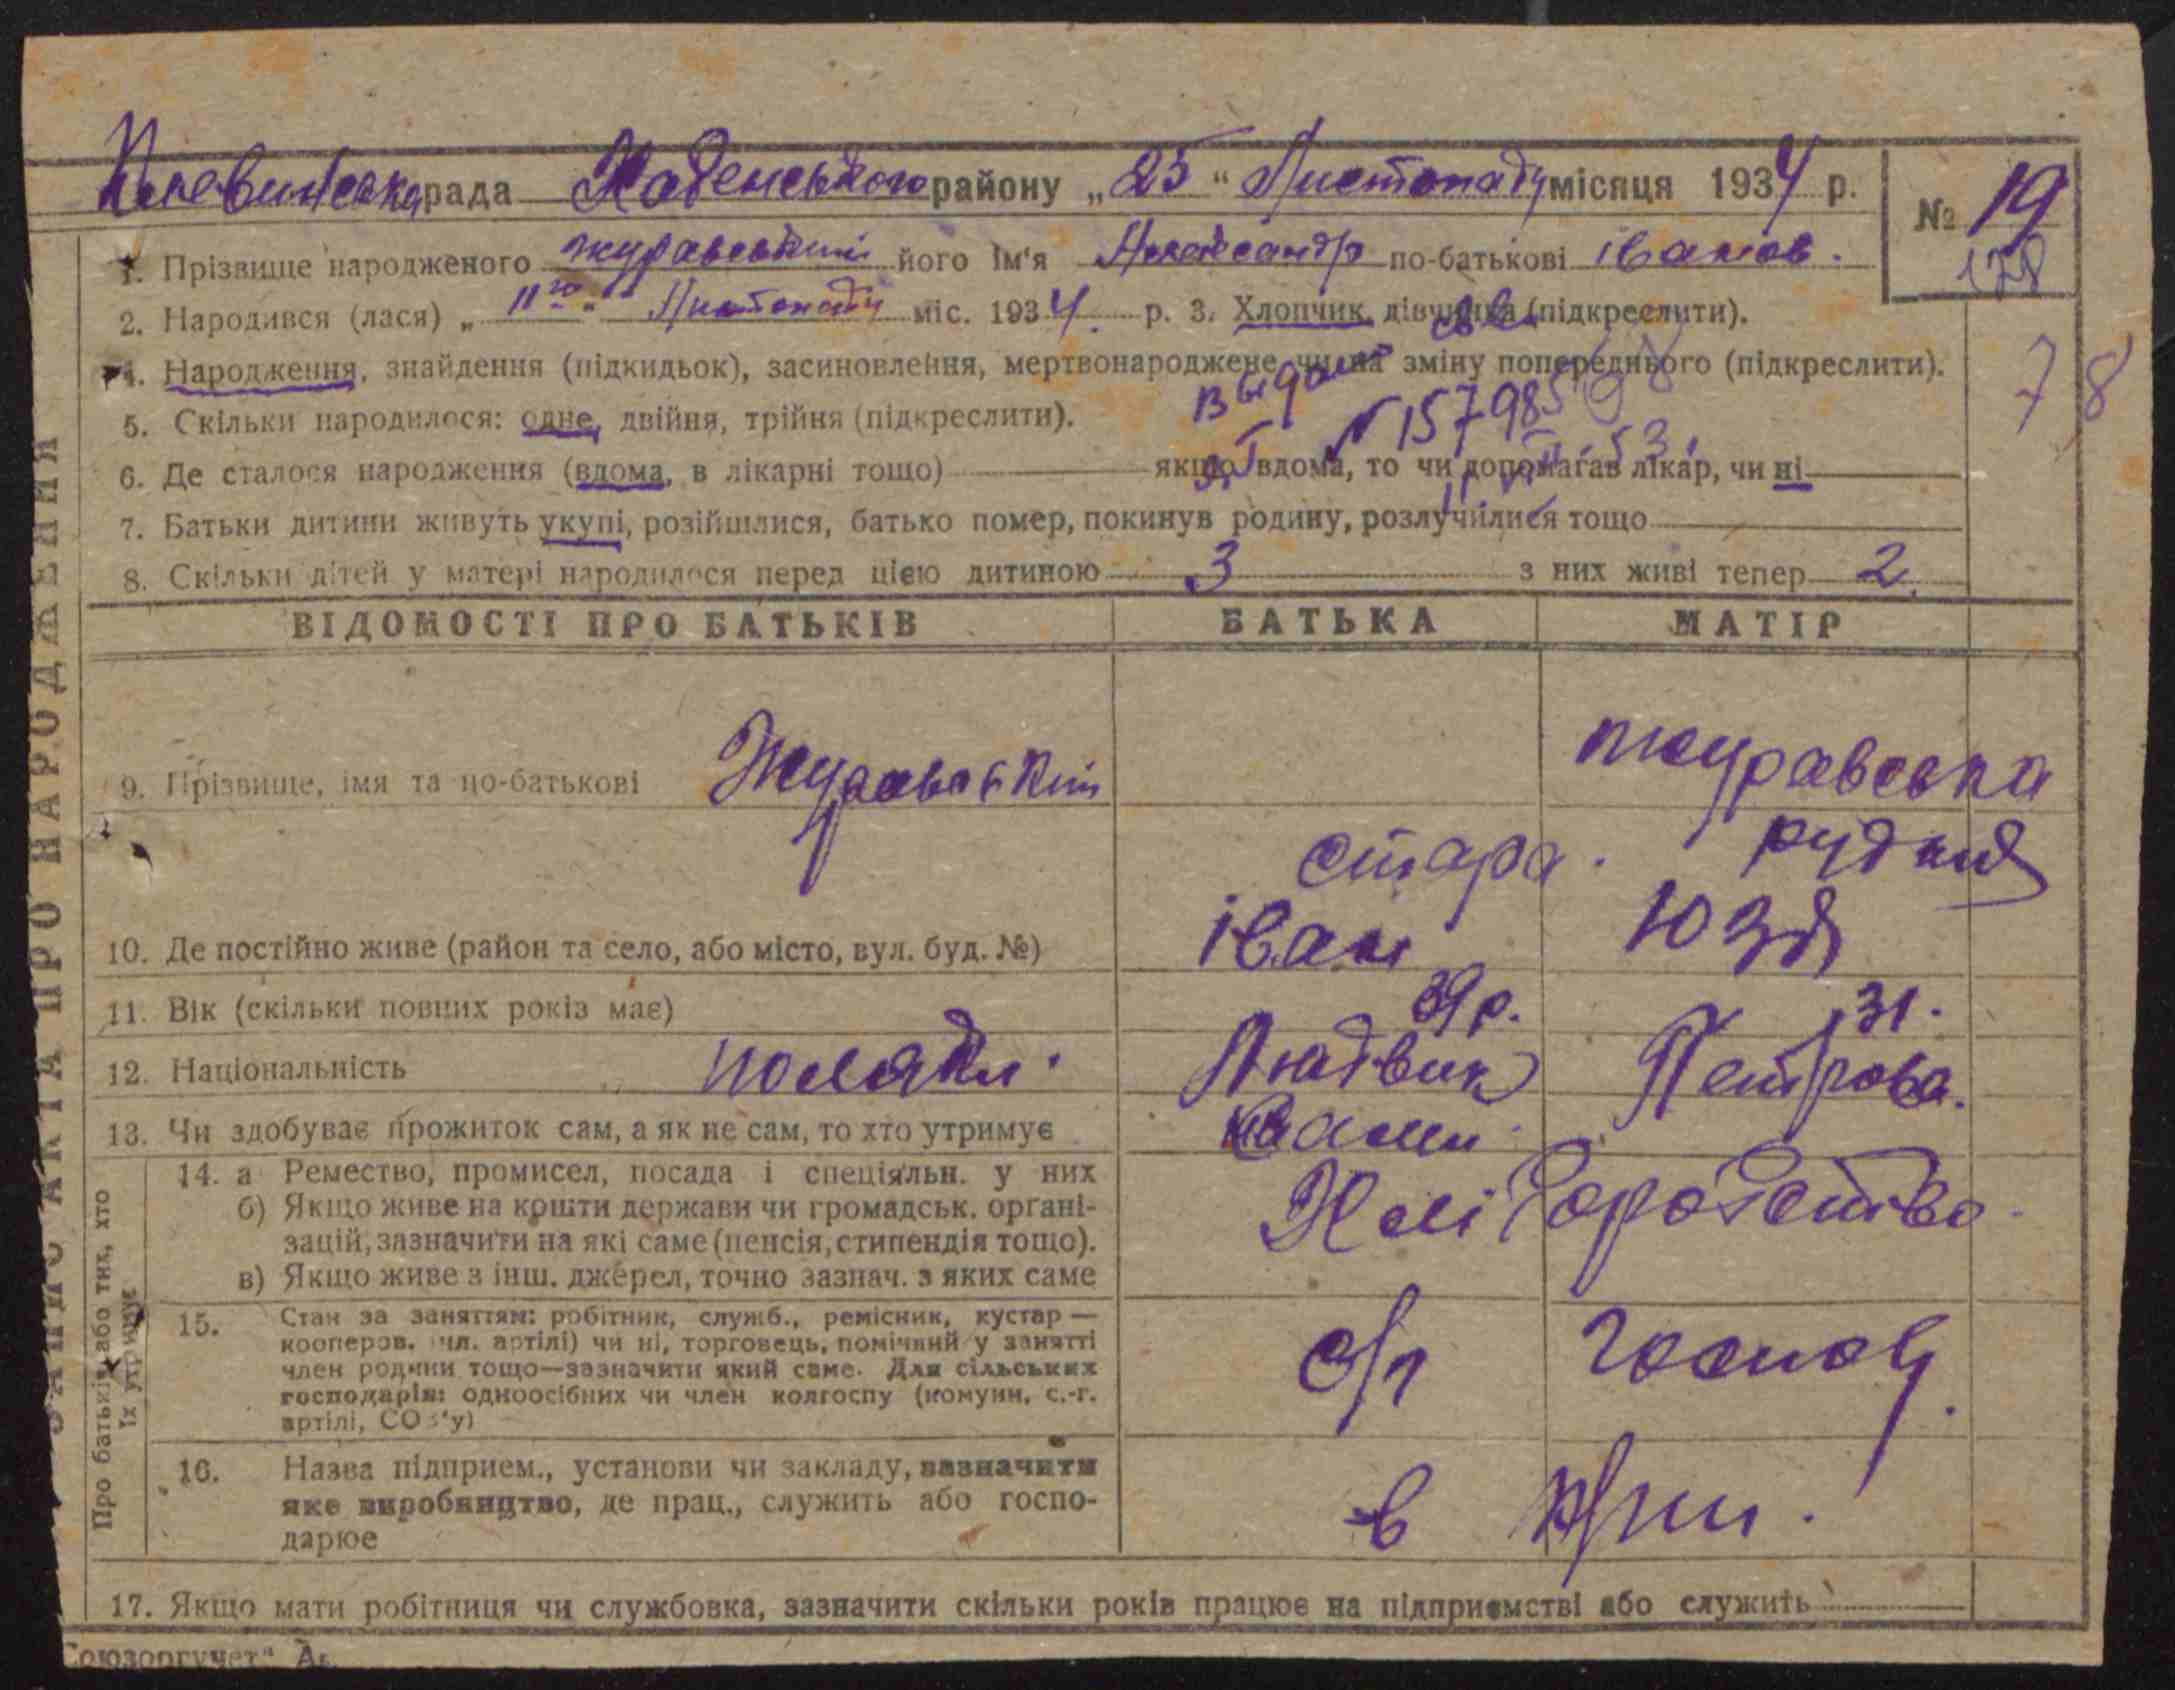 рада району „ 25 “ Листопаду місяця 1934 р. № 19
178
1. Прізвище народженого Журавський його ім'я Александр по-батькові іванов.
2. Народився (лася) „ 11го “ Листопаду міс. 1934. р. 3. Хлопчик, дівчинка (підкреслити).
4. Народження, знайдення (підкидьок), засиновлення, мертвонароджене чи на зміну попереднього (підкреслити).
78
Выдано св.
5. Скільки народилося: одне, двійня, трійня (підкреслити).
6. Де сталося народження (вдома, в лікарні тощо) якщо вдома, то чи допомагав лікар, чи ні
7. Батьки дитини живуть укупі, розійшлися, батько помер, покинув родину, розлучилися тощо
8. Скільки дітей у матері народилося перед цією дитиною 3 з них живі тепер 2.
ВІДОМОСТІ ПРО БАТЬКІВ БАТЬКА МАТІР
9. Прізвище, імя та по-батькові Журавський журавська
стара. рудня
10. Де постійно живе (район та село, або місто, вул. буд. №) іван Юзя
11. Вік (скільки повних років має) 39 р. 31.
12. Національність поляки. Людвик Петрова.
13. Чи здобуває прожиток сам, а як не сам, то хто утримує сами.
14. а Ремество, промисел, посада і спеціяльн. у них
б) Якщо живе на кошти держави чи громадськ. органі-
зацій, зазначити на які саме (пенсія, стипендія тощо).
в) Якщо живе з інш. джерел, точно зазнач. з яких саме
Хліборобство.
15. Стан за заняттям: робітник, служб., ремісник, кустар —
кооперов. чл. артілі) чи ні, торговець, помічний у занятті
член родини тощо—зазначити який саме. Для сільських
господарів: одноосібних чи член колгоспу (комуни, с.-г.
артілі, СОЗ'у)
с/г господ.
16. Назва підприєм., установи чи закладу, зазначити
яке виробництво, де прац., служить або госпо-
дарює
в
17. Якщо мати робітниця чи службовка, зазначити скільки років працює на підприємстві або служить
Союзоргучет“
ЗАПИС АКТА ПРО НАРОДЖЕННЯ
Про батьків або тих, хто
їх утримує